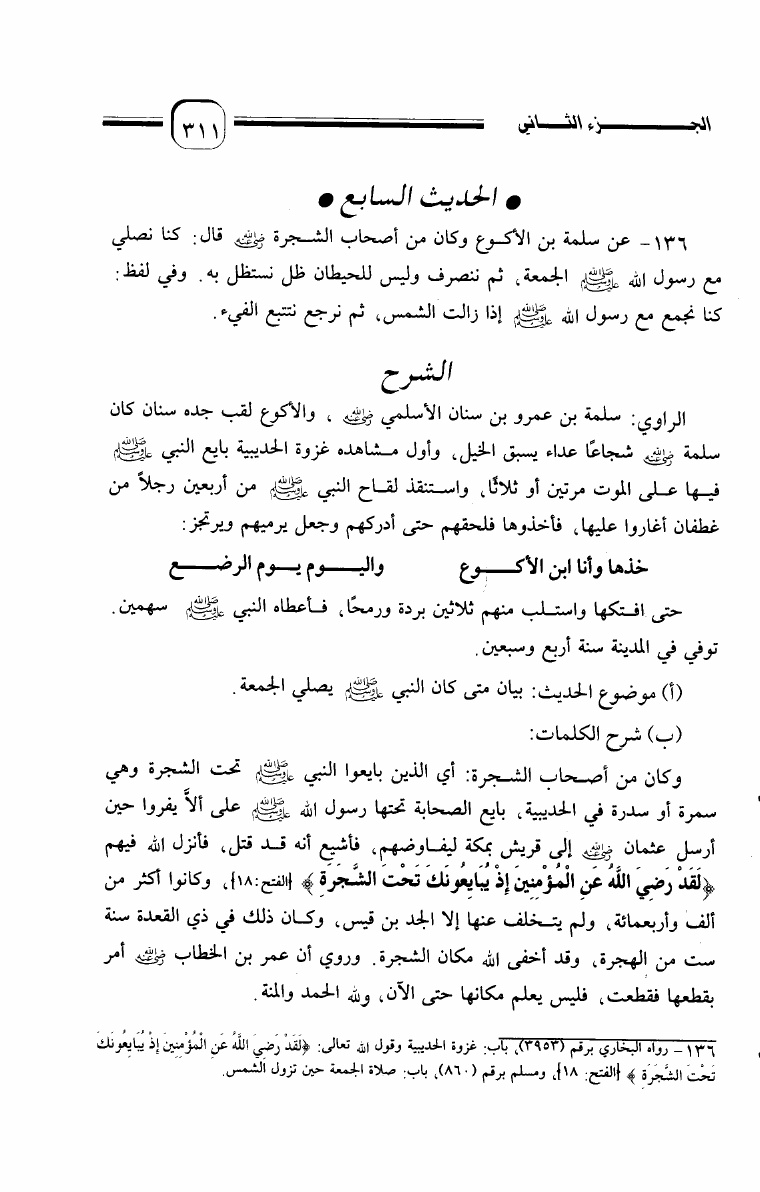 الجـــزء الثـــاني
٣١١
● الحديث السابع ●
١٣٦- عن سلمة بن الأكـوع وكان من أصحاب الشـجرة رضي الله عنه قال: كنا نصلي
مع رسول الله ﷺ الجمعة، ثم ننصرف وليس للحيطان ظل نستظل به. وفي لفظ:
كنا نجمع مع رسول الله ﷺ إذا زالت الشمس، ثم نرجع نتتبع الفيء.
الشرح
الراوي: سلمة بن عمرو بن سنان الأسلمي رضي الله عنه ، والأكوع لقب جده سنان كان
سلمة رضي الله عنه شجاعًا عداء يسبق الخيل، وأول مـشاهده غزوة الحديبية بايع النبي ﷺ
فيـها عـلى الموت مرتين أو ثلاثًا، واسـتنقذ لقـاح النبي ﷺ من أربعين رجلاً من
غطفان أغاروا عليها، فأخذوها فلحقهم حتى أدركهم وجعل يرميهم ويرتجز:
خذها وأنا ابن الأكـــوع     واليـــوم يـوم الرضـــع
حتى افـتكها واستـلب منهم ثلاثين بردة ورمحًا، فـأعطاه النبي ﷺ سهمين.
توفي في المدينة سنة أربع وسبعين.
(أ) موضوع الحديث: بيان متى كان النبي ﷺ يصلي الجمعة.
(ب) شرح الكلمات:
وكان من أصـحاب الشـجرة: أي الذين بايعوا النبي ﷺ تحت الشجرة وهي
سمرة أو سدرة في الحديبية، بايع الصحابة تحتها رسول الله ﷺ على ألاَّ يفروا حين
أرسل عثمان رضي الله عنه إلى قريش بمكة ليفـاوضهم، فأشيع أنه قـد قتل، فأنزل الله فيهم
﴿لَقَدْ رَضِيَ اللَّهُ عَنِ الْمُؤْمِنِينَ إِذْ يُبَايِعُونَكَ تَحْتَ الشَّجَرَةِ ﴾ {الفتح:١٨}، وكانوا أكثر من
ألف وأربعمائة، ولم يتـخلف عنها إلا الجد بن قيس، وكـان ذلك في ذي القعدة سنة
ست من الهجرة، وقد أخفى الله مكان الشجرة. وروي أن عمر بن الخطاب رضي الله عنه أمر
بقطعها فقطعت، فليس يعلم مكانها حتى الآن، ولله الحمد والمنة.
١٣٦- رواه البخاري برقم (٣٩٥٣)، باب: غزوة الحديبية وقول الله تعالى: ﴿لَقَدْ رَضِيَ اللَّهُ عَنِ الْمُؤْمِنِينَ إِذْ يُبَايِعُونَكَ
تَحْتَ الشَّجَرَةِ ﴾ {الفتح: ١٨}، ومسلم برقم (٨٦٠)، باب: صلاة الجمعة حين تزول الشمس.